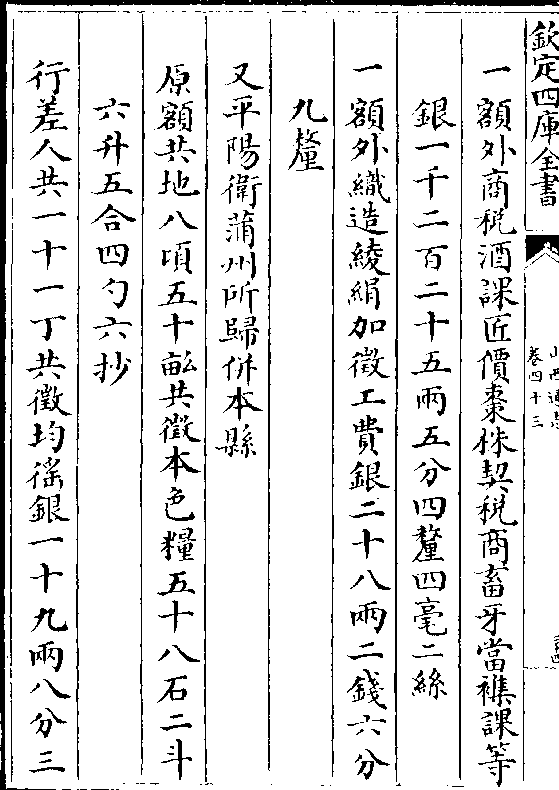 欽定四庫全書
山西通志
卷四十三
一額外商稅酒課匠價棗株契稅商畜牙當襍課等
銀一千二百二十五兩五分四釐四毫二絲
一額外織造綾絹加徵工費銀二十八兩二錢六分
九釐
又平陽衛蒲州所歸併本縣
原額共地八頃五十畝共徵本色糧五十八石二斗
六升五合四勺六抄
行差人共一十一丁共徵均徭銀一十九兩八分三